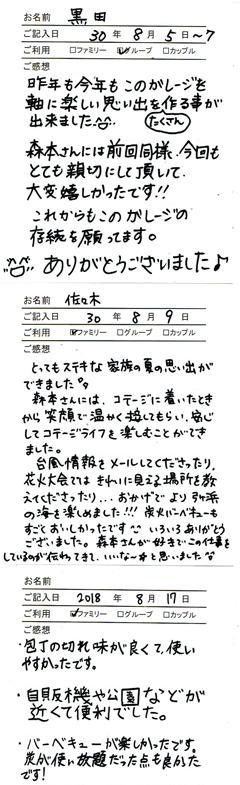 お名前 黒田
ご記入日 30 年 8 月 5 日〜7
ご利用 □ファミリー ☑グループ □カップル
ご感想
昨年も今年もこのガレージを
軸に楽しい思い出を作る事が
出来ました たくさん
森本さんには前回同様、今回も
とても親切にして頂いて、
大変嬉しかったです!!
これからもこのガレージの
存続を願ってます。
ありがとうございました♪
お名前 佐々木
ご記入日 30 年 8 月 9 日
ご利用 ☑ファミリー □グループ □カップル
ご感想
とってもステキな家族の夏の思い出が
できました
森本さんには、コテージに着いたとき
から笑顔で温かく接してもらい、安心
してコテージライフを楽しむことができ
ました。
台風情報をメールしてくださったり、
花火大会ではきれいに見える場所を教
えてくださったり... おかげでより弓ヶ浜
の海を楽しめました!!! 炭火バーベキューも
すごくおいしかったです いろいろありがとう
ございました。森本さんが好きでこの仕事を
しているのが伝わってきて、いいな〜☆と思いました
お名前
ご記入日 2018 年 8 月 17 日
ご利用 ☑ファミリー □グループ □カップル
ご感想
・包丁の切れ味が良くて、使い
やすかったです。
・自販機や公園などが
近くて便利でした。
・バーベキューが楽しかったです。
炭が使い放題だった点も良かった
です!